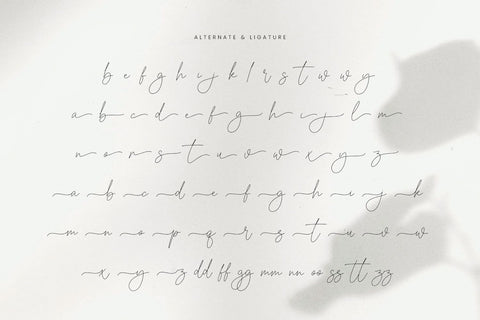 ALTERNATE & LIGATURE
b e f g h i j k l r s t v w y
a b c d e f g h i j l m
n o r s t u v w x y z
a b c d e f g h i j k
m n o p q r s t u v w
x y z dd ff gg mm nn oo ss tt zz